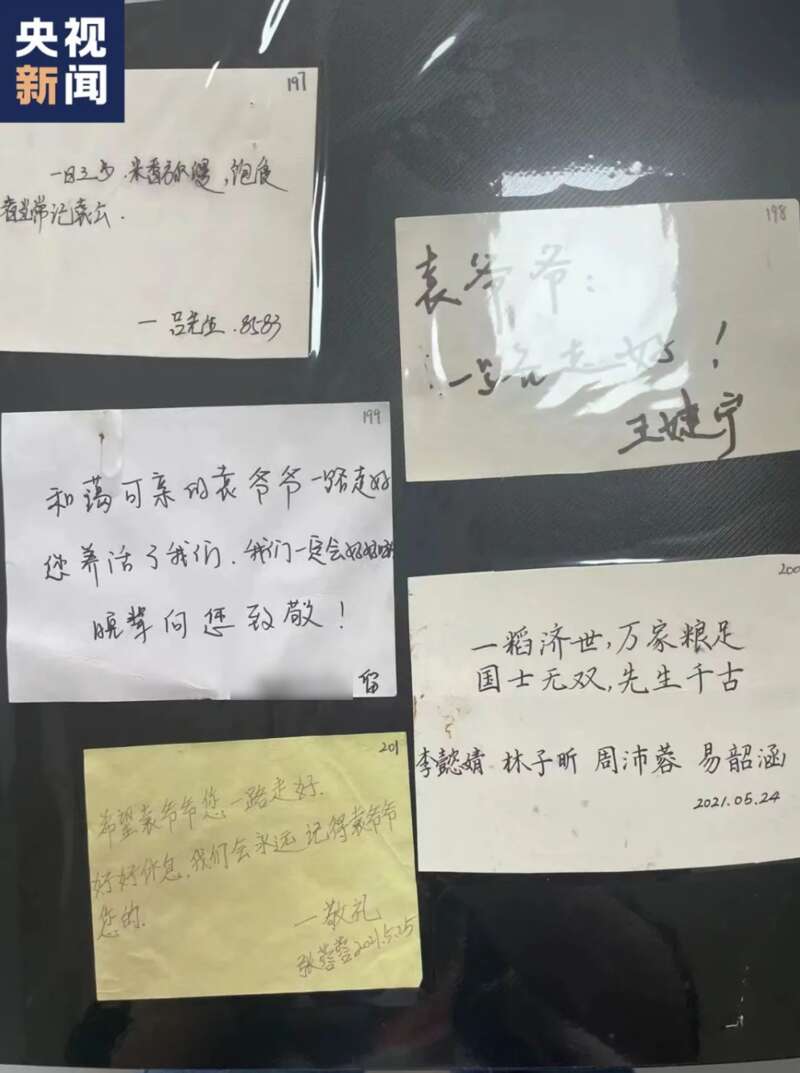 央视
新闻
197
一日三步.米香弥漫,饱食
者当常记袁公.
一 吕先生.8583
198
袁爷爷:
一路走好!
王婕宁
199
和蔼可亲的袁爷爷一路走好
您养活了我们.我们一定会好好吃
晚辈向您致敬!
留
200
一稻济世,万家粮足
国士无双,先生千古
李懿婧 林子昕 周沛蓉 易韶涵
2021.05.24
201
希望袁爷爷您一路走好.
好好休息,我们会永远记得袁爷爷
您的.
一敬礼
张蓉蓉2021.5.25